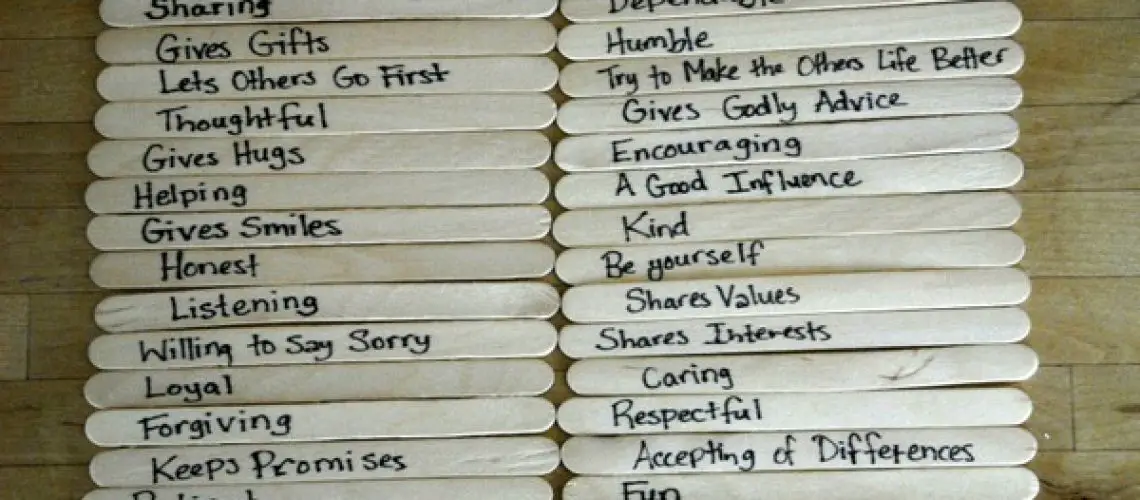 Sharing
Gives Gifts
Lets Others Go First
Thoughtful
Gives Hugs
Helping
Gives Smiles
Honest
Listening
Willing to Say Sorry
Loyal
Forgiving
Keeps Promises
Patient
Dependable
Humble
Try to Make the Others Life Better
Gives Godly Advice
Encouraging
A Good Influence
Kind
Be yourself
Shares Values
Shares Interests
Caring
Respectful
Accepting of Differences
Fun